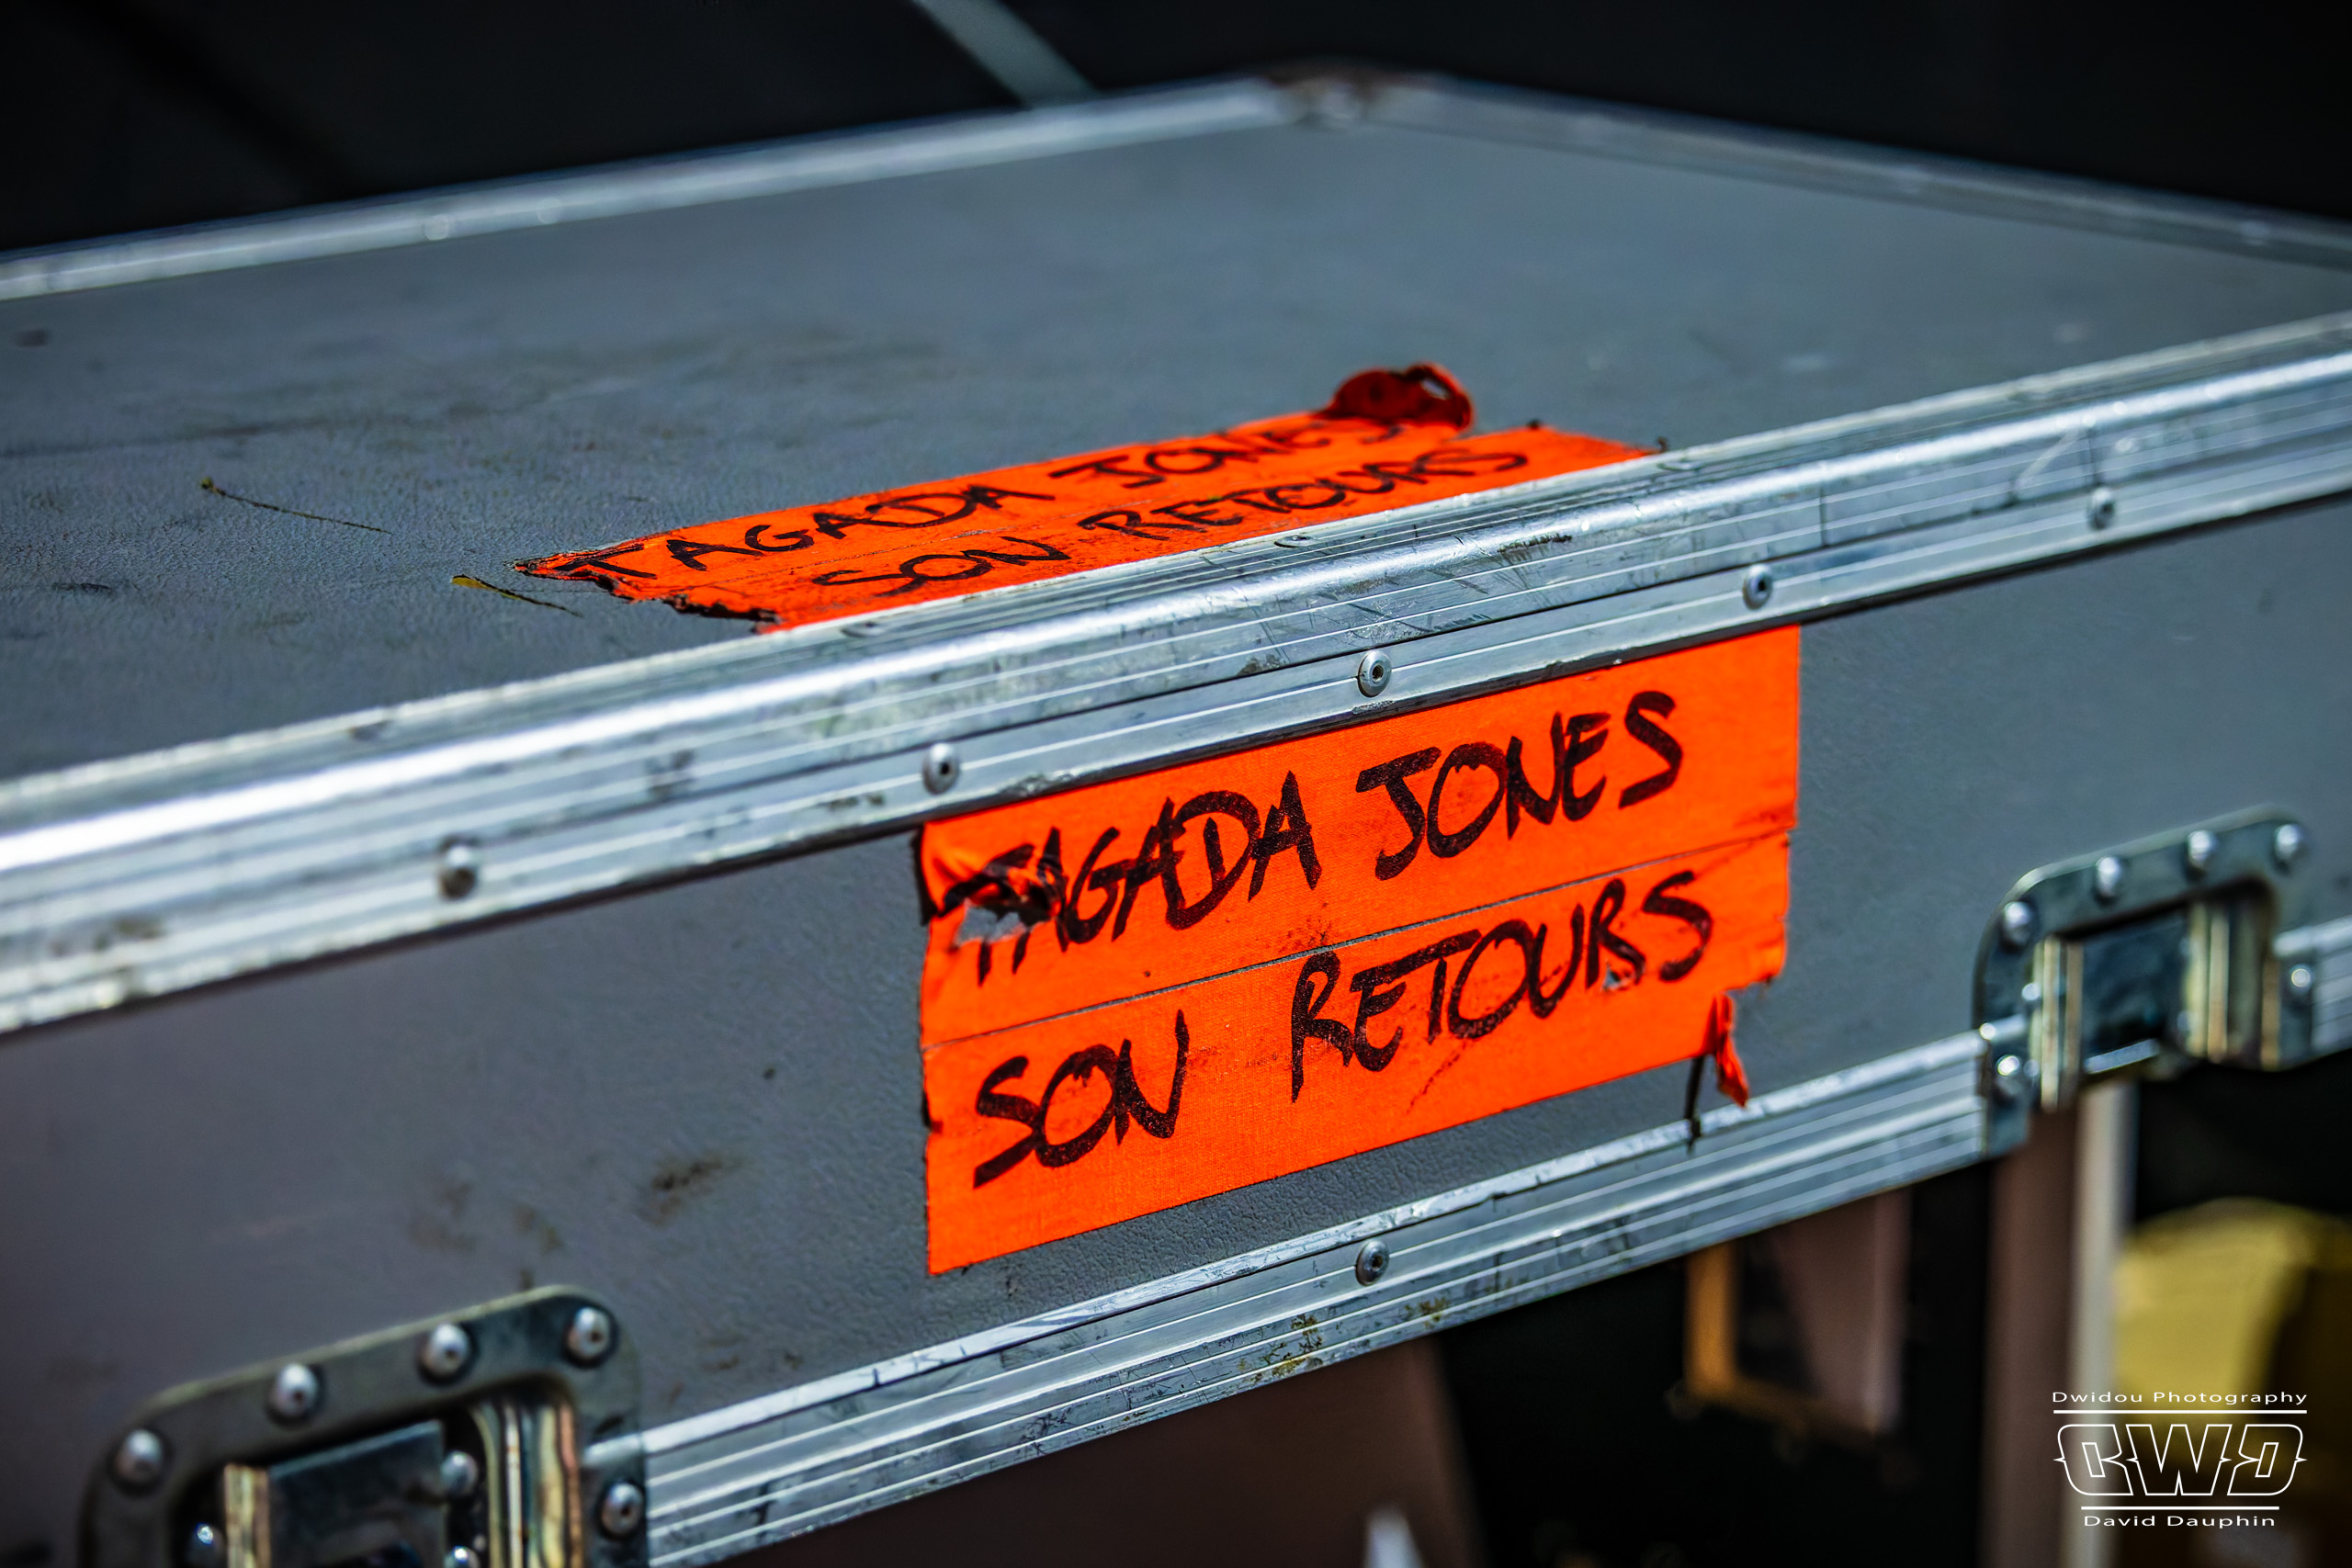 TAGADA JONES
SON RETOURS
TAGADA JONES
SON RETOURS
Dwidou Photography
DWD
David Dauphin